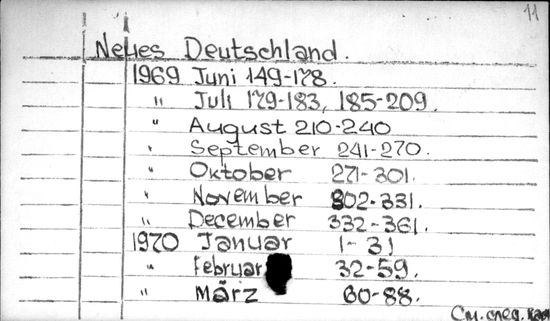 11
Neues Deutschland.
1969 Juni 149-178.
" Juli 179-183, 185-209.
" August 210-240
" September 241-270.
" Oktober 271-301.
" November 302-331.
" December 332-361.
1970 Januar 1-31
" Februar 32-59.
" März 60-88.
См. след.